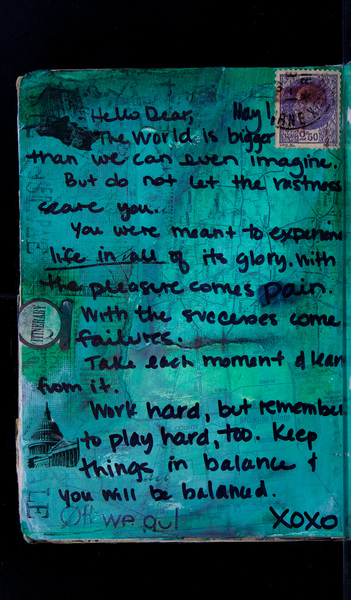 Hello Dear, May 1,
The World is bigger
than we can even imagine.
But do not let the vastness
scare you...
You were meant to experience
life in all of its glory. With
the pleasure comes pain.
With the successes come
failures.
Take each moment & learn
from it.
Work hard, but remember
to play hard, too. Keep
things in balance &
you will be balanced.
Off we go!
XOXO
ITINERARY
2.50
LE